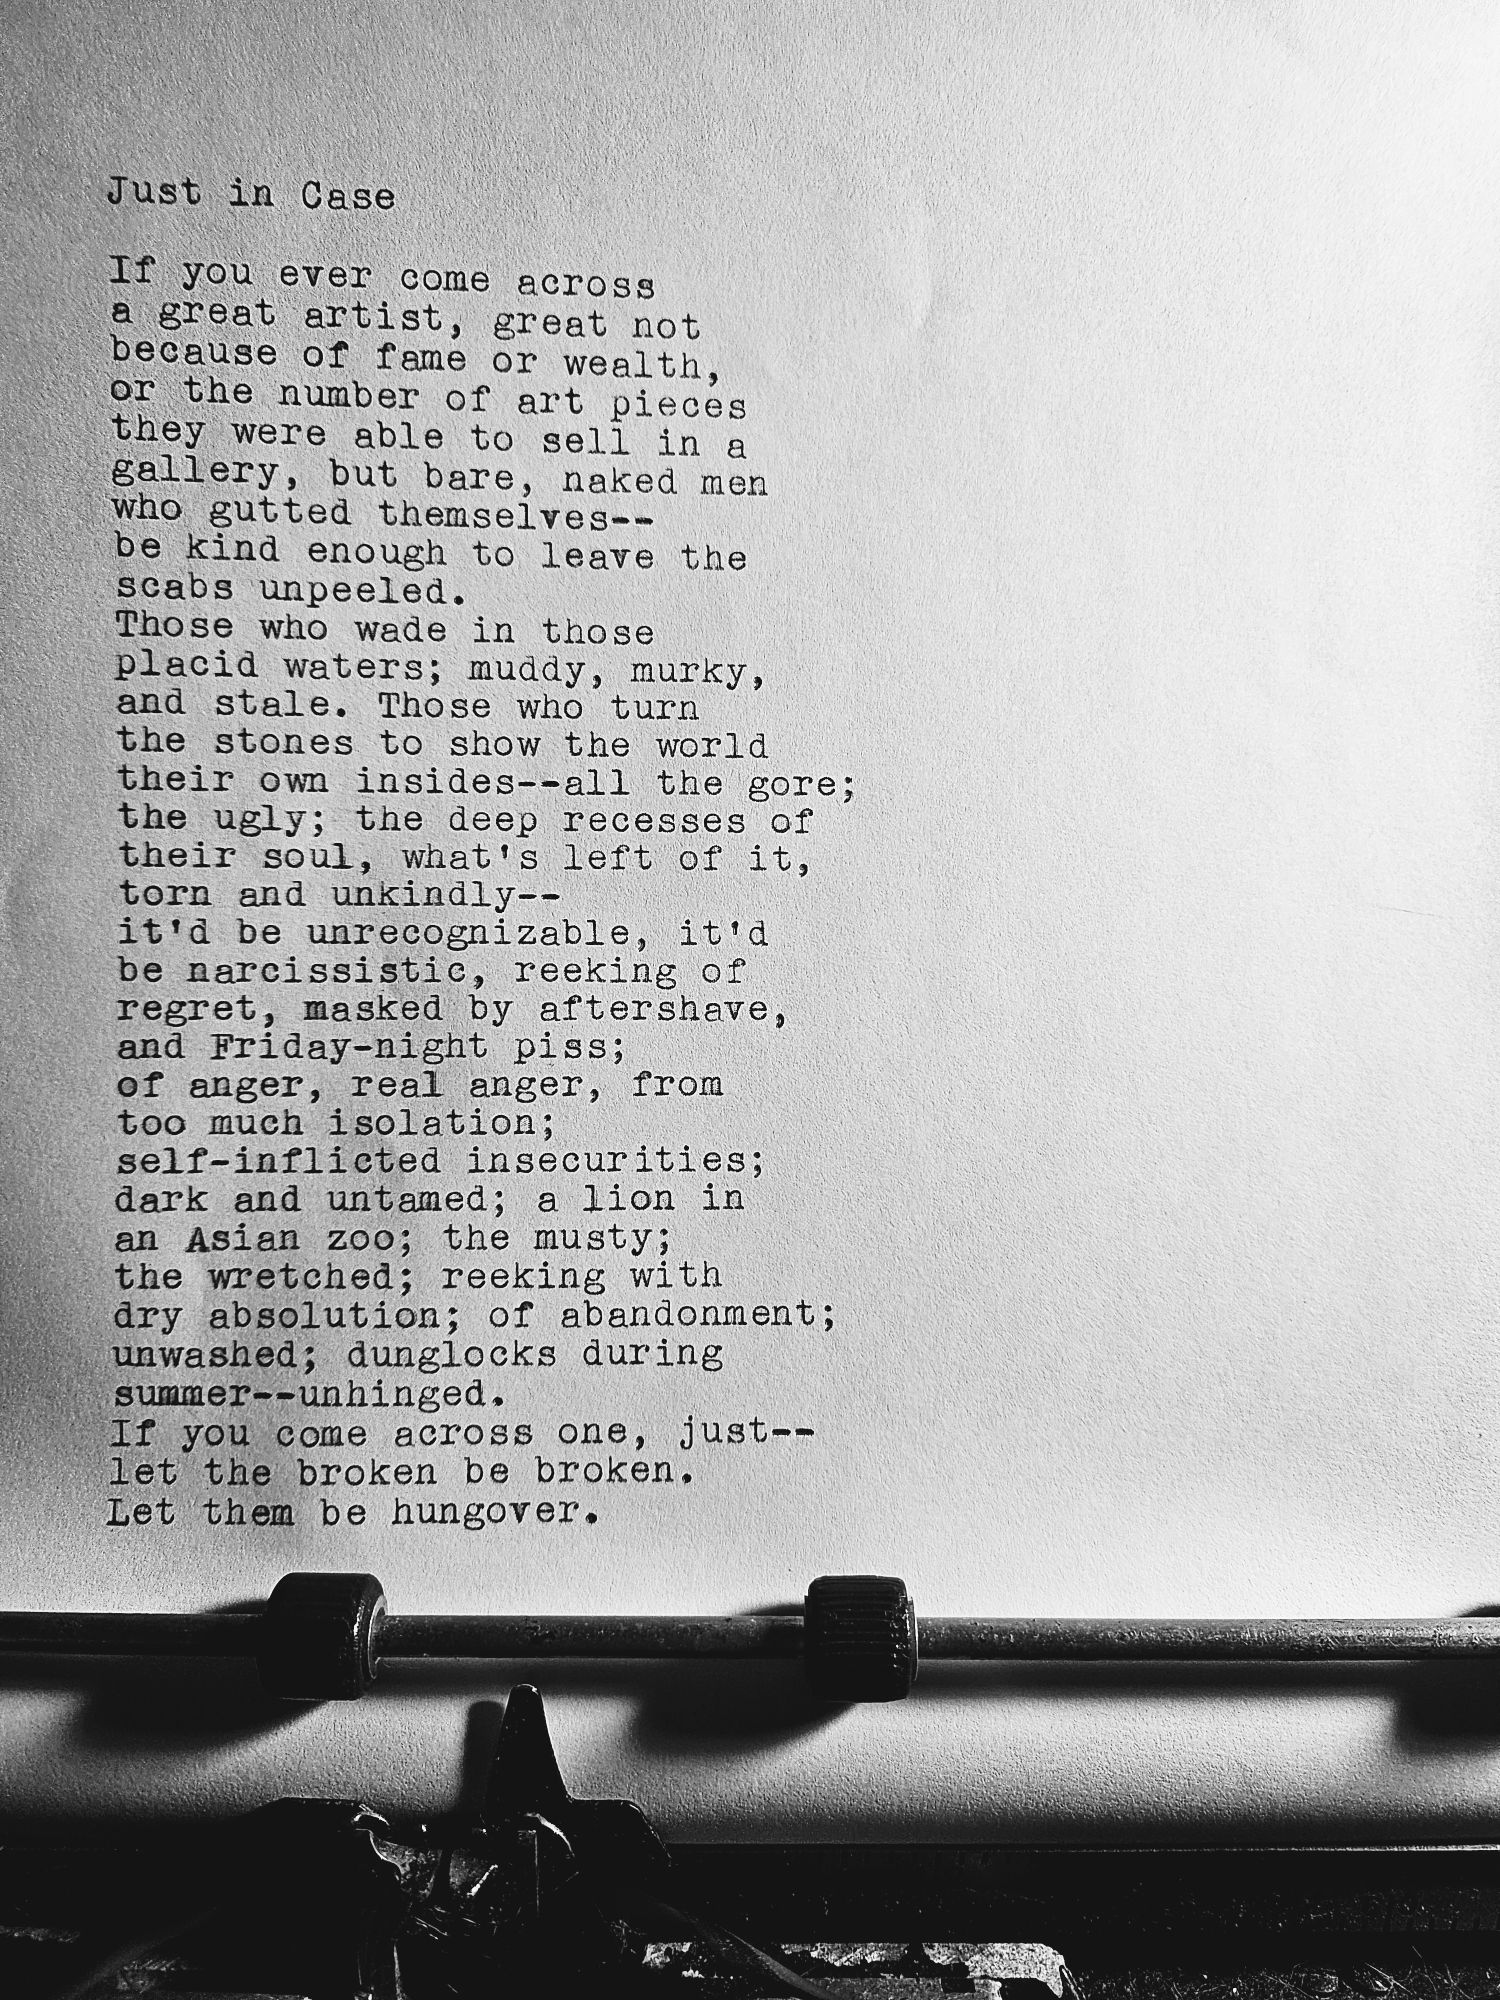 Just in Case
If you ever come across
a great artist, great not
because of fame or wealth,
or the number of art pieces
they were able to sell in a
gallery, but bare, naked men
who gutted themselves--
be kind enough to leave the
scabs unpeeled.
Those who wade in those
placid waters; muddy, murky,
and stale. Those who turn
the stones to show the world
their own insides--all the gore;
the ugly; the deep recesses of
their soul, what's left of it,
torn and unkindly--
it'd be unrecognizable, it'd
be narcissistic, reeking of
regret, masked by aftershave,
and Friday-night piss;
of anger, real anger, from
too much isolation;
self-inflicted insecurities;
dark and untamed; a lion in
an Asian zoo; the musty;
the wretched; reeking with
dry absolution; of abandonment;
unwashed; dunglocks during
summer--unhinged.
If you come across one, just--
let the broken be broken.
Let them be hungover.